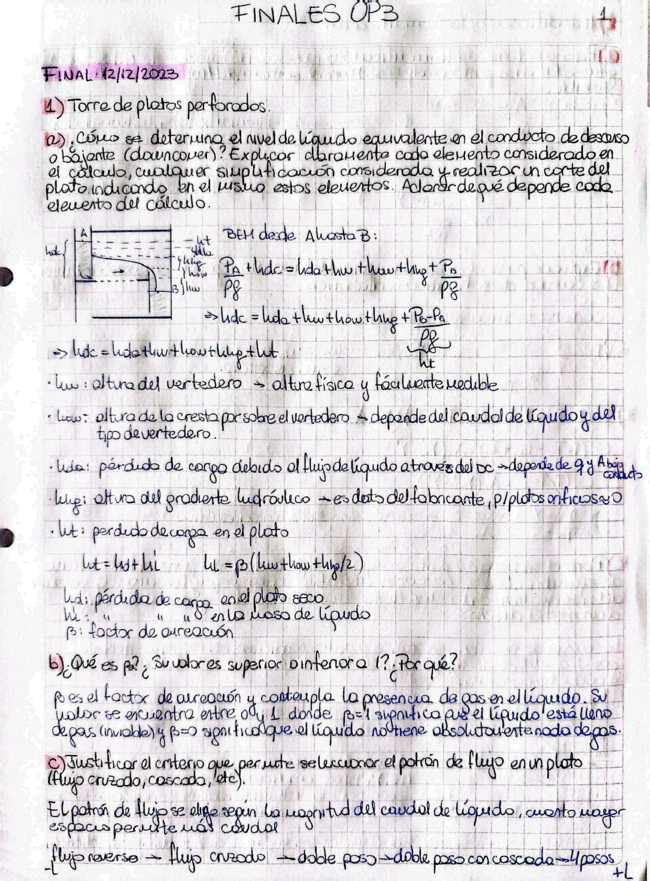 FINALES OP3
1
FINAL 12/12/2023
1) Torre de platos perforados.
a) ¿Cómo se determina el nivel de líquido equivalente en el conducto de descenso
o bajante (downcomer)? Explicar claramente cada elemento considerado en
el cálculo, cualquier simplificación considerada y realizar un corte del
plato indicando en el mismo estos elementos. Aclarar de qué depende cada
elemento del cálculo.
BEM desde A hasta B:
A
hdc
ht
hda
hhg
how
B
hw
PA/ρg + hdc = hda + hw + how + hhg + PB/ρg
⇒ hdc = hda + hw + how + hhg + PB-PA/ρg
ht
⇒ hdc = hda + hw + how + hhg + ht
· hw: altura del vertedero → altura física y fácilmente medible
· how: altura de la cresta por sobre el vertedero → depende del caudal de líquido y del
tipo de vertedero.
· hda: pérdida de carga debido al flujo de líquido a través del DC → depende de q y A bajo
conducto
· hhg: altura del gradiente hidráulico → es dato del fabricante, p/platos orificios ≈ 0
· ht: perdida de carga en el plato
ht = hd + hl    hl = β(hw + how + hhg/2)
hd: pérdida de carga en el plato seco
hl: " " " en la masa de líquido
β: factor de aireación
b) ¿Qué es β? ¿Su valor es superior o inferior a 1? ¿Por qué?
β es el factor de aireación y contempla la presencia de gas en el líquido. Su
valor se encuentra entre 0 y 1 donde β=1 significa que el líquido está lleno
de gas (inviable) y β=0 significa que el líquido no tiene absolutamente nada de gas.
c) Justificar el criterio que permite seleccionar el patrón de flujo en un plato
(flujo cruzado, cascada, etc).
El patrón de flujo se elige según la magnitud del caudal de líquido, cuanto mayor
espacio permite más caudal
flujo reverso → flujo cruzado → doble paso → doble paso con cascada → 4 pasos
-L
+L